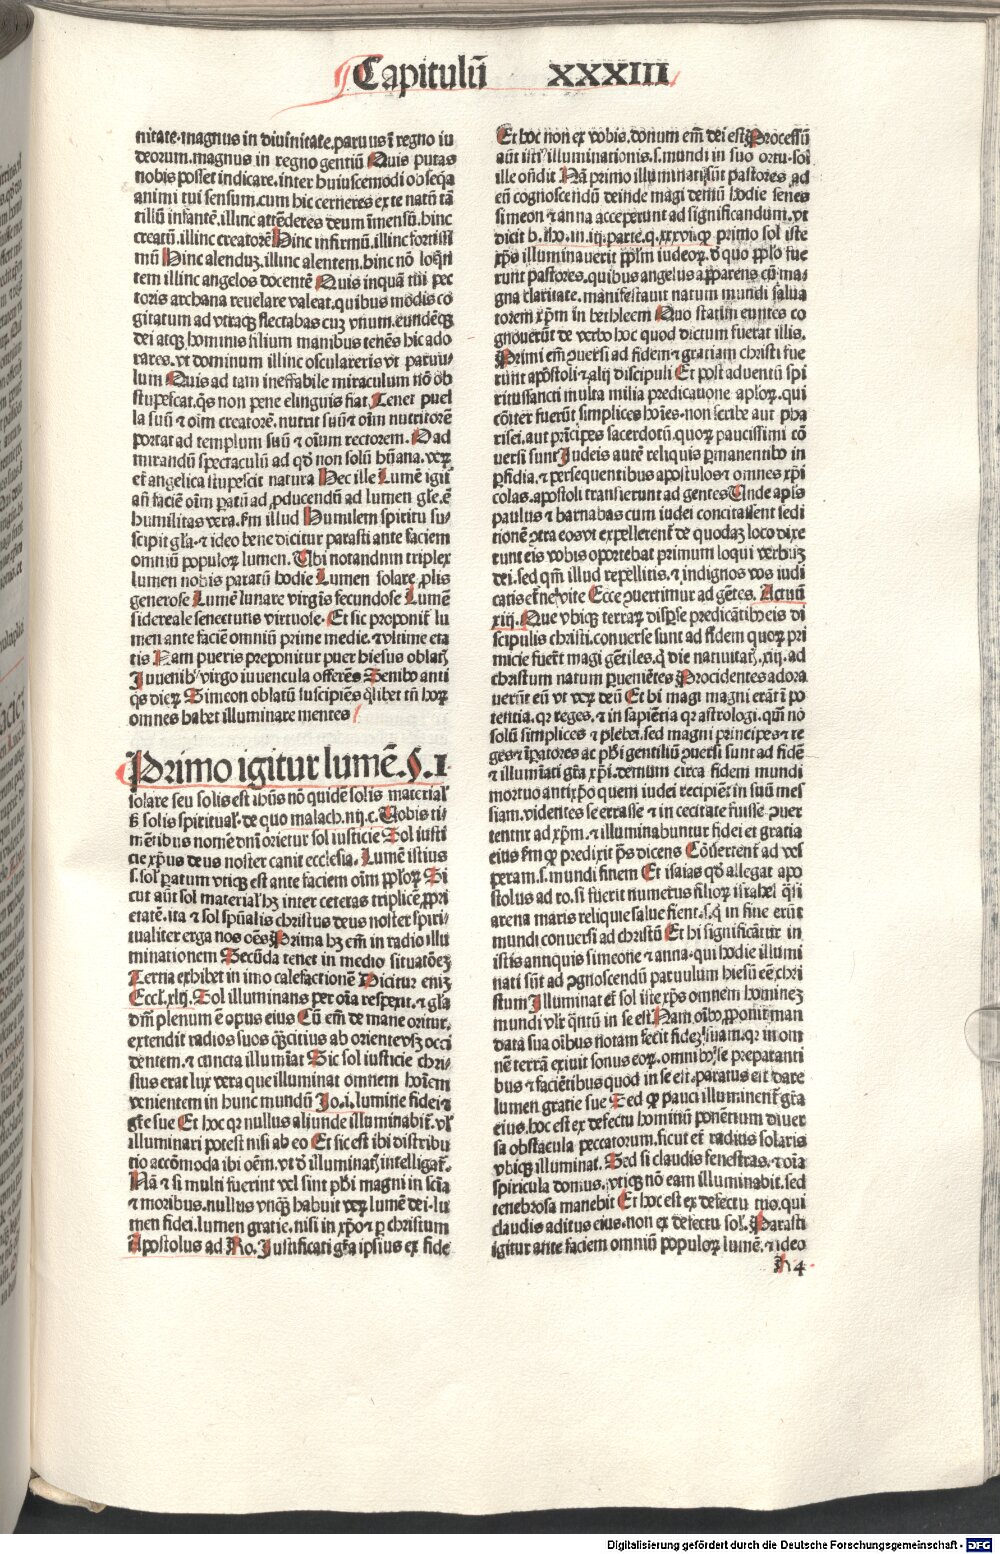 Capitulū XXXIII
nitate.magnus in diuinitate.paruus ī regno iu
deorum.magnus in regno gentiū Quis putas
nobis posset indicare.inter huiuscemodi obseq̄a
animi tui sensum.cum hic cerneres ex te natū tā
tillū infantē.illinc attēderes deum īmensū.hinc
creatū.illinc creatorē Hinc infirmū.illinc fortissi
mū Hinc alenduz.illinc alentem.hinc nō loq̄n
tem illinc angelos docentē Quis inquā tui pec
toris archana reuelare valeat.quibus modis co
gitatum ad vtraqꝫ flectabas cuz vnum.eundēqꝫ
dei atqꝫ hominis filium manibus tenēs hic ado
rares.vt dominum illinc osculareris vt paruu/
lum Quis ad tam ineffabile miraculum nō ob
stupescat.q̄s non pene elinguis fiat Tenet puel
la suū ⁊ oīm creatorē.nutrit suū ⁊ oīm nutritorē
portat ad templum suū ⁊ oīum rectorem. O ad
mirandū spectaculū ad qd̄ non solū hūana.veꝝ
et̄ angelica stupescit natura Hec ille Lumē igit̄
añ faciē oīm ꝑatū ad ꝓducendū ad lumen gl̄e.ē
humilitas vera.fm illud Humilem spiritu su/
scipit gl̄a.⁊ ideo bene dicitur parasti ante faciem
omniū populoꝝ lumen. Ubi notandum triplex
lumen nobis paratū hodie Lumen solare ꝓlis
generose Lumē lunare virgīs fecundose Lumē
sidereale senectutis virtuose. Et sic proponit̄ lu
men ante faciē omniū prime medie.⁊ vltime eta
tis Nam pueris preponitur puer hiesus oblatꝰ
Juuenibꝰ virgo iuuencula offerēs Senibo anti
q̄s dieꝝ Simeon oblatū suscipiēs q̄libet tn̄ hoꝝ
omnes habet illuminare mentes
Primo igitur lumē.§.1
solare seu solis est ih̄us nō quidē solis materialꝭ
sꝫ solis spiritualꝭ.de quo malach.iiij.c. Uobis ti/
mētibus nomē dn̄i orietur sol iusticie Sol iusti
cie xp̄us deus noster canit ecclesia. Lumē istius
s.sol ꝑatum vtiqꝫ est ante faciem oīm ppl̄oꝝ Si
cut aūt sol materialꝭ hꝫ inter ceteras triplicē ꝓpri
etatē.ita ⁊ sol spūalis christus deus noster spiri/
tualiter erga nos oēs Prima hꝫ em̄ in radio illu
minationem Secūda tenet in medio situatōeꝫ
Terna exhibet in imo calefactionē Dicitur eniꝫ
Eccl̄.xliij. Sol illuminans per oīa respexit.⁊ gl̄a
dn̄i plenum ē opus eius Cū em̄ de mane oritur.
extendit radios suos q̄ȝcitius ab oriente vsqꝫ occi
dentem.⁊ cuncta illumīat Sic sol iusticie chri/
stus erat lux vera que illuminat omnem hoīem
venientem in hunc mundū Jo.i.lumine fidei ⁊
gr̄e sue Et hoc qꝛ nullus aliunde illuminabit̄.vl̓
illuminari potest nisi ab eo Et sic est ibi distribu
tio accōmoda ibi oēm.vt d̄ illuminatꝰ intelligat̄.
Nā ⁊ si multi fuerint vel sint ph̄i magni in scīa
⁊ moribus.nullus vnqꝫ habuit veꝝ lumē dei.lu
men fidei.lumen gratie.nisi in xp̄o ⁊ ꝑ christum
Apostolus ad Ro. Justificati gr̄a ipsius ex fide
Et hoc non ex vobis.donum em̄ dei est Processū
aūt istiꝰ illuminationis.s.mundi in suo ortu.sol
ille on̄dit Nā primo illuminati sūt pastores ad
eū cognoscendū deinde magi demū hodie senes
simeon ⁊ anna acceperunt ad significandum.vt
dicit b.tho.in.iij.parte.q.xxxvi.ꝙ primo sol iste
xp̄s illuminauerit ppl̄m iudeoꝝ.d̄ quo ppl̄o fue
runt pastores.quibus angelus apparens cū ma/
gna claritate.manifestauit natum mundi salua
torem xp̄m in bethleem Quo statim euntes co
gnouerūt de verbo hoc quod dictum fuerat illis.
Primi em̄ ꝯuersi ad fidem ⁊ gratiam christi fue
runt apostoli ⁊ alij discipuli Et post aduentū spi
ritussancti multa milia predicatione aploꝝ.qui
cōiter fuerūt simplices hoīes.non scribe aut pha
risei.aut prīcipes sacerdotū.quoꝝ paucissimi cō
uersi sunt Judeis autē reliquis ꝑmanentibo in
ꝑfidia.⁊ persequentibus apostolos ⁊ omnes xp̄i
colas.apostoli transierunt ad gentes Unde apl̄s
paulus ⁊ barnabas cum iudei concitassent sedi
tionē ꝯtra eos vt expellerent̄ de quodaꝫ loco dixe
runt eis vobis oportebat primum loqui verbuꝫ
dei.sed qm̄ illud repellitis.⁊ indignos vos iudi
catis et̄ne vite Ecce ꝯuertimur ad gētes. Actuū
xiij. Que vbiqꝫ terraꝝ disꝑse predicātibo eis di
scipulis christi.conuerse sunt ad fidem quoꝝ pri
micie fuerūt magi gētiles.q̄ die natiuitatꝭ.xiij.ad
christum natum ꝑuenietes Procidentes adora
uerūt eū vt veꝝ deū Et hi magi magni erāt ī po
tentia.qꝛ reges.⁊ in sapiētia qꝛ astrologi.qm̄ nō
solū simplices ⁊ plebei.sed magi principes ⁊ re
ges ⁊ īpatores ac ph̄i gentiliū ꝯuersi sunt ad fidē
⁊ illumīati gr̄a xp̄i.demum circa finem mundi
mortuo antixp̄o quem iudei recipiēt in suū mes
siam.videntes se errasse ⁊ in cecitate fuisse ꝯuer
tentur ad xp̄m.⁊ illuminabuntur fidei et gratia
eius fm ꝙ predixit ꝓ̄s dicens Cōuertent̄ ad ves
peram.s.mundi finem Et isaias qd̄ allegat apo
stolus ad ro.si fuerit numerus filioꝝ israhel q̄si
arena maris reliquie salue fient.s.q̄ in fine erūt
mundi conuersi ad christū Et hi significātur in
istis antiquis simeone ⁊ anna.qui hodie illumi
nati sūt ad ꝯgnoscendū paruulum hiesū eē chri
stum Illuminat et̄ sol iste xp̄s omnem homineꝫ
mundi vl̓r q̄ntū in se est. Nam oībo ꝓponit man
data sua oībus notam fecit fideꝫ suam.qꝛ in om
nē terrā exiuit sonus eoꝝ.omnibꝰ se preparanti
bus ⁊ faciētibus quod in se est.paratus est dare
lumen gratie sue Sed ꝙ pauci illuminent̄ gr̄a
eius.hoc est ex defectu hominū ponentium diuer
sa obstacula peccatorum.sicut et̄ radius solaris
vbiqꝫ illuminat. Sed si claudis fenestras.⁊ oīa
spiricula domus.vtiqꝫ nō eam illuminabit.sed
tenebrosa manebit Et hoc est ex defectu tuo.qui
claudis aditus eius.non ex defectu sol̓. Parasti
igitur ante faciem omniū populoꝝ lumē.⁊ ideo
h 4
Digitalisierung gefördert durch die Deutsche Forschungsgemeinschaft - DFG